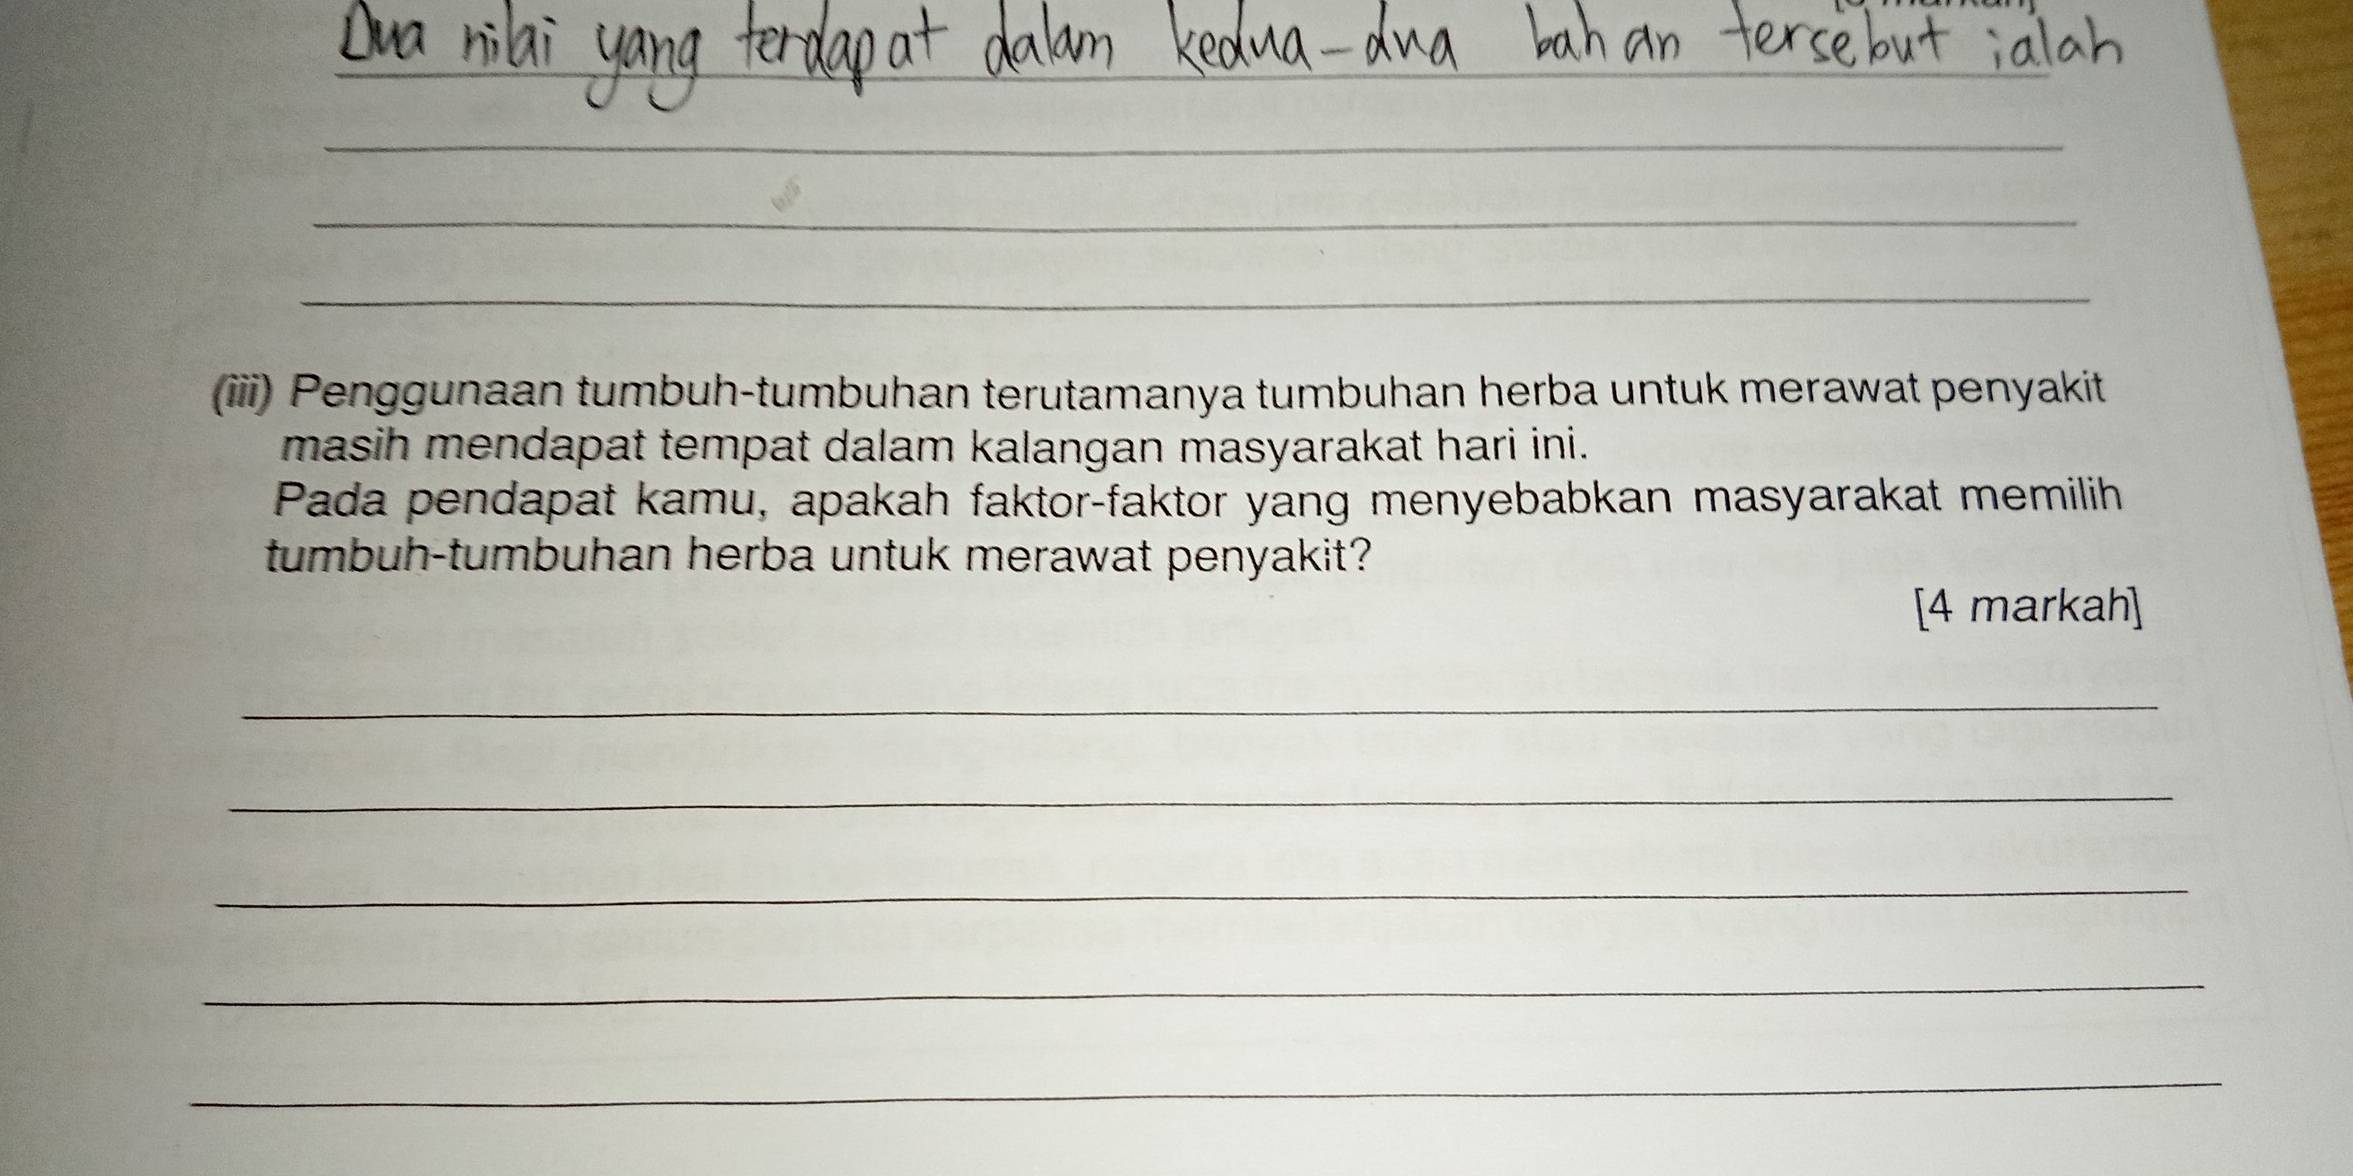 Dua nilai yang terdapat dalam kedua-dua bahan tersebut ialah
(iii) Penggunaan tumbuh-tumbuhan terutamanya tumbuhan herba untuk merawat penyakit
masih mendapat tempat dalam kalangan masyarakat hari ini.
Pada pendapat kamu, apakah faktor-faktor yang menyebabkan masyarakat memilih
tumbuh-tumbuhan herba untuk merawat penyakit?
[4 markah]